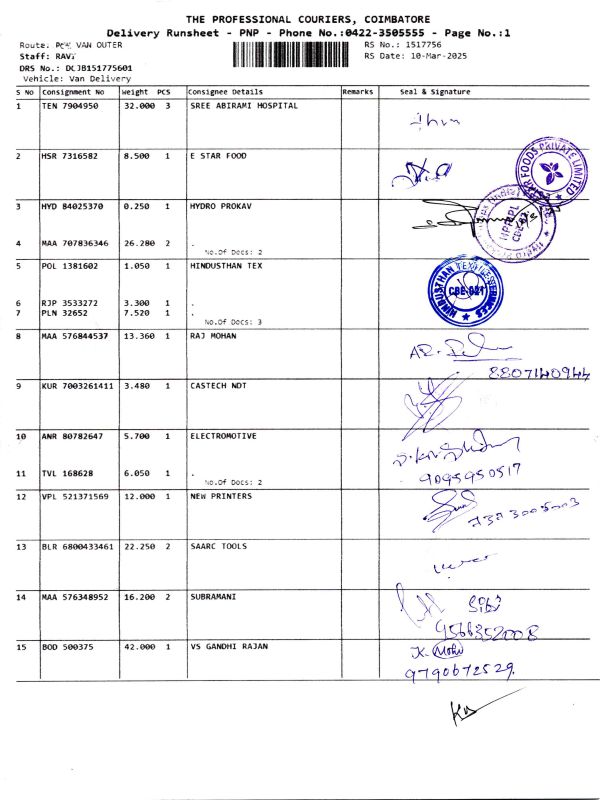 THE PROFESSIONAL COURIERS, COIMBATORE
Delivery Runsheet - PNP - Phone No.:0422-3505555 - Page No.:1
Route: PCW VAN OUTER
RS No.: 1517756
Staff: RAVI
RS Date: 10-Mar-2025
DRS No.: DCJB151775601
Vehicle: Van Delivery
S No Consignment No Weight PCS Consignee Details Remarks Seal & Signature
1 TEN 7904950 32.000 3 SREE ABIRAMI HOSPITAL
2 HSR 7316582 8.500 1 E STAR FOOD
FOODS PRIVATE LIMITED
3 HYD 84025370 0.250 1 HYDRO PROKAV
4 MAA 707836346 26.280 2 .
No.Of Docs: 2
5 POL 1381602 1.050 1 HINDUSTHAN TEX
6 RJP 3533272 3.300 1 .
7 PLN 32652 7.520 1 .
No.Of Docs: 3
CBE-021
8 MAA 576844537 13.360 1 RAJ MOHAN
8807140944
9 KUR 7003261411 3.480 1 CASTECH NDT
10 ANR 80782647 5.700 1 ELECTROMOTIVE
11 TVL 168628 6.050 1 .
No.Of Docs: 2
9095950517
12 VPL 521371569 12.000 1 NEW PRINTERS
13 BLR 6800433461 22.250 2 SAARC TOOLS
14 MAA 576348952 16.200 2 SUBRAMANI
9566352008
15 BOD 500375 42.000 1 VS GANDHI RAJAN
K. Mohi
9790672529.